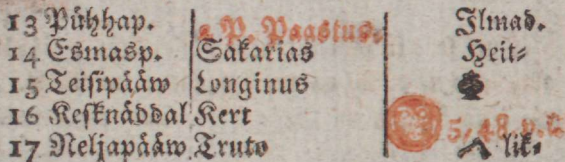 13 Pühhap. 2 P. Paastus- Ilmad.
14 Esmasp. Sakarias Heit-
15 Teisipääw Longinus
16 Kesknäddal Kert 5, 48 p. l.
17 Neljapääw Truto lik-